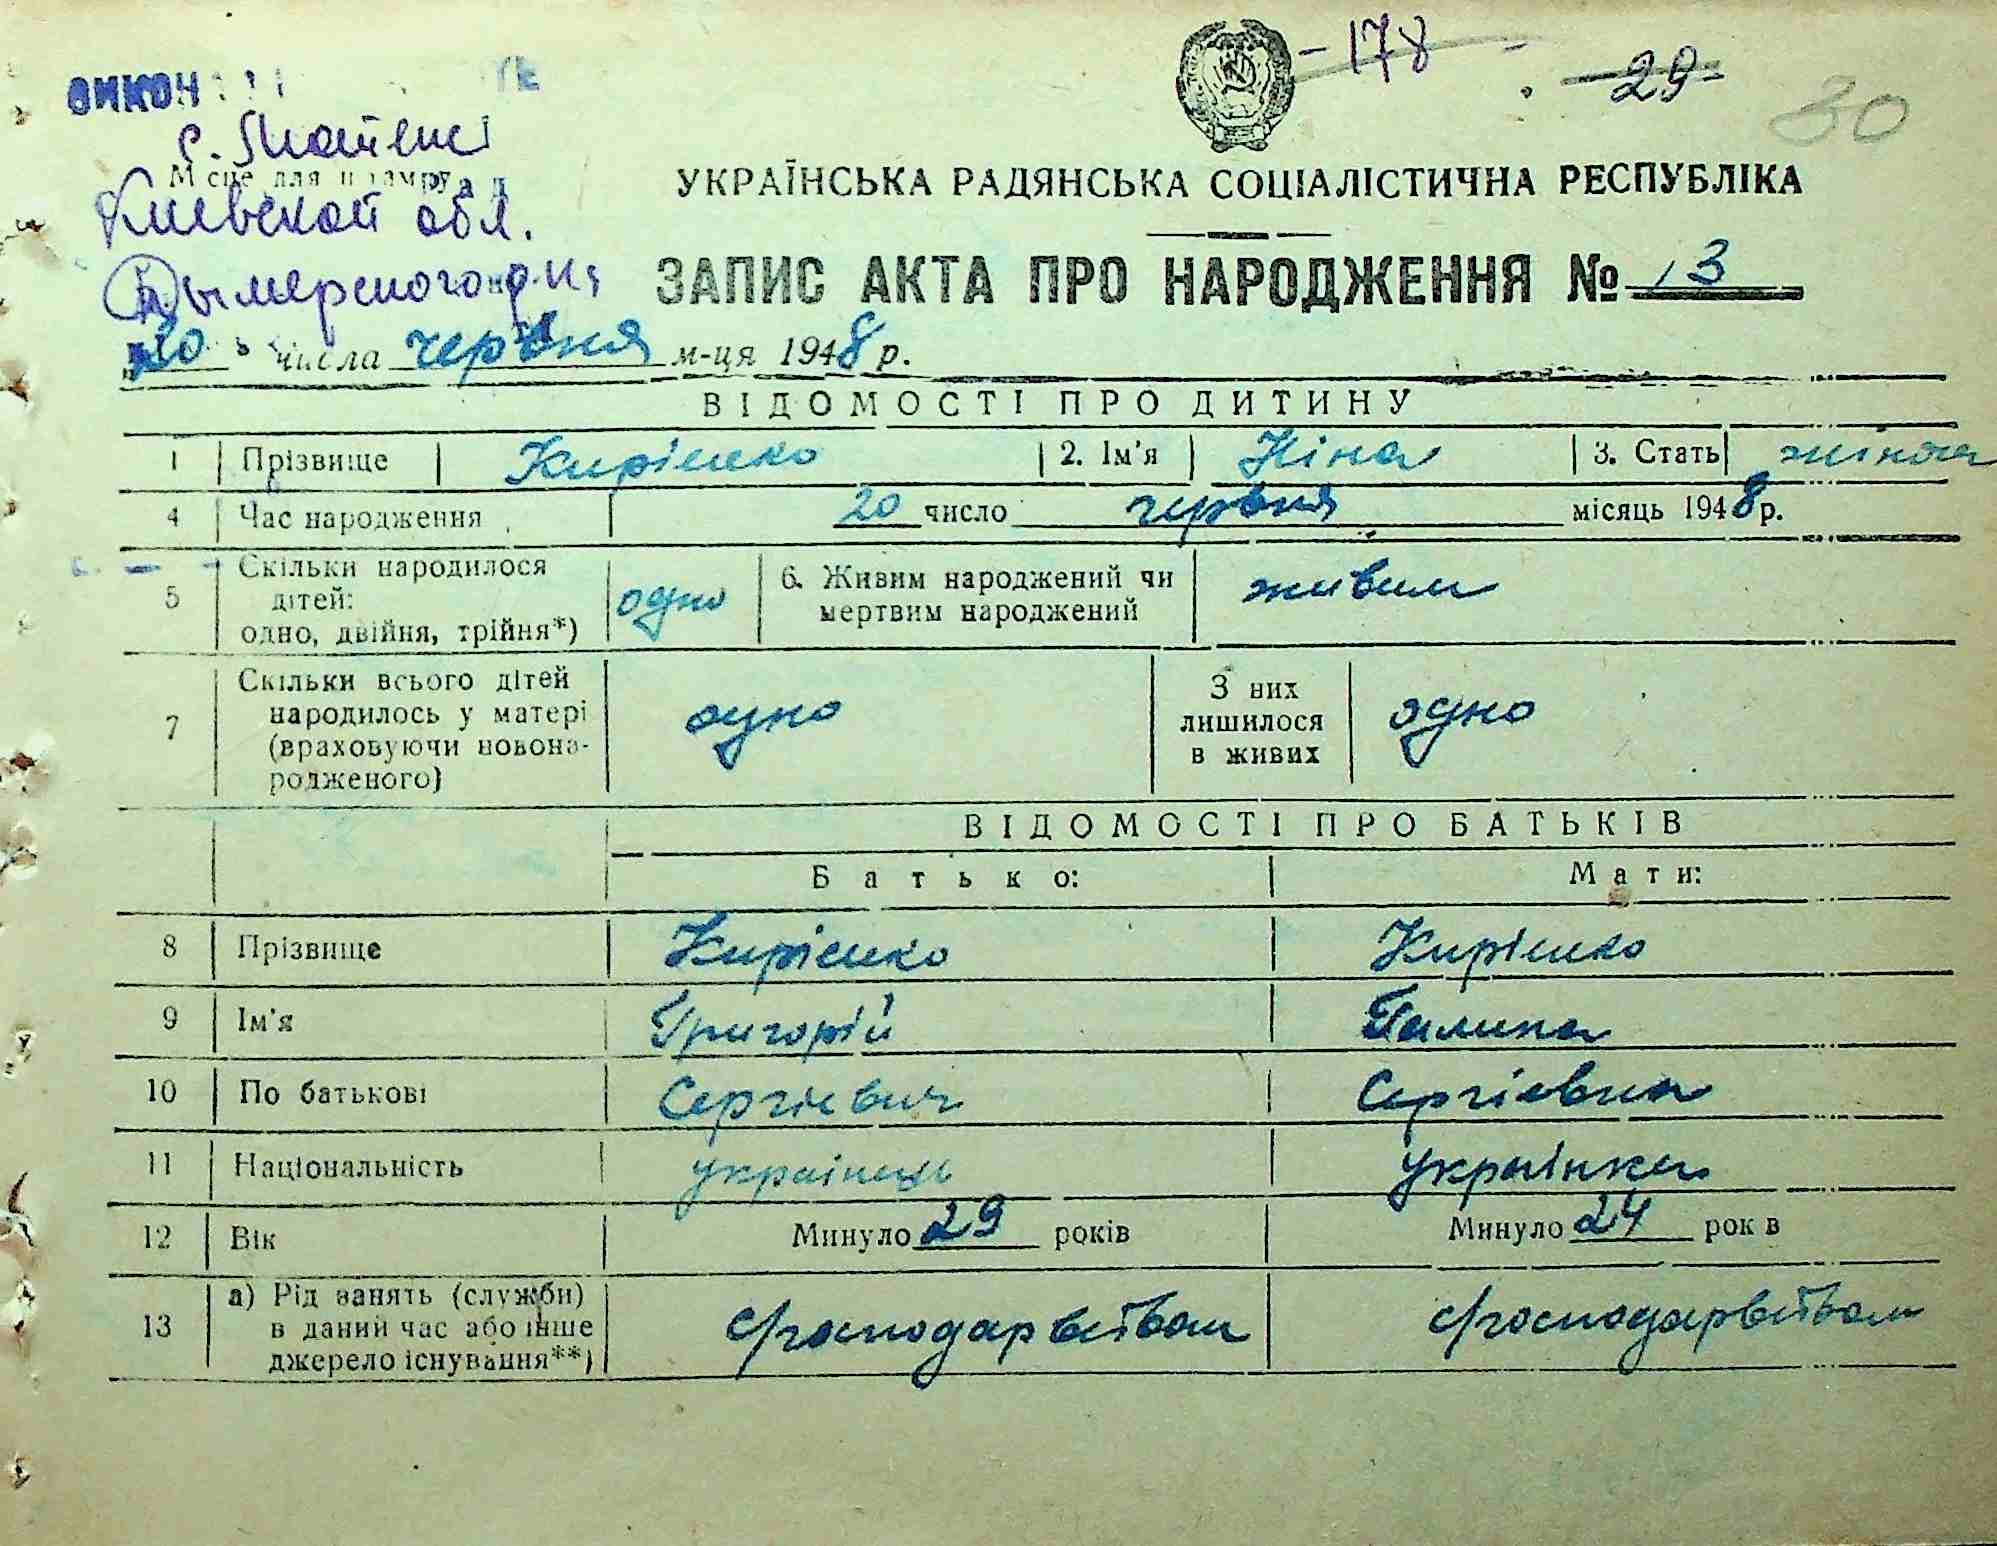 -178 -29- 30
ВИКОН
Місце для штампу
Киевской обл.
Дымерского р-на
УКРАЇНСЬКА РАДЯНСЬКА СОЦІАЛІСТИЧНА РЕСПУБЛІКА
ЗАПИС АКТА ПРО НАРОДЖЕННЯ № 13
20 числа червня м-ця 1948 р.
ВІДОМОСТІ ПРО ДИТИНУ
1 Прізвище Кирієнко 2. Ім'я Ніна 3. Стать жіноч
4 Час народження 20 число червня місяць 1948 р.
5 Скільки народилося
дітей:
одно, двійня, трійня*) одно
6. Живим народжений чи
мертвим народжений живим
7 Скільки всього дітей
народилось у матері
(враховуючи новона-
родженого) одно
З них
лишилося
в живих одно
ВІДОМОСТІ ПРО БАТЬКІВ
Батько: Мати:
8 Прізвище Кирієнко Кирієнко
9 Ім'я Григорій Галина
10 По батькові Сергієвич Сергієвна
11 Національність українець українка
12 Вік Минуло 29 років Минуло 24 років
13 а) Рід занять (служби)
в даний час або інше
джерело існування**)